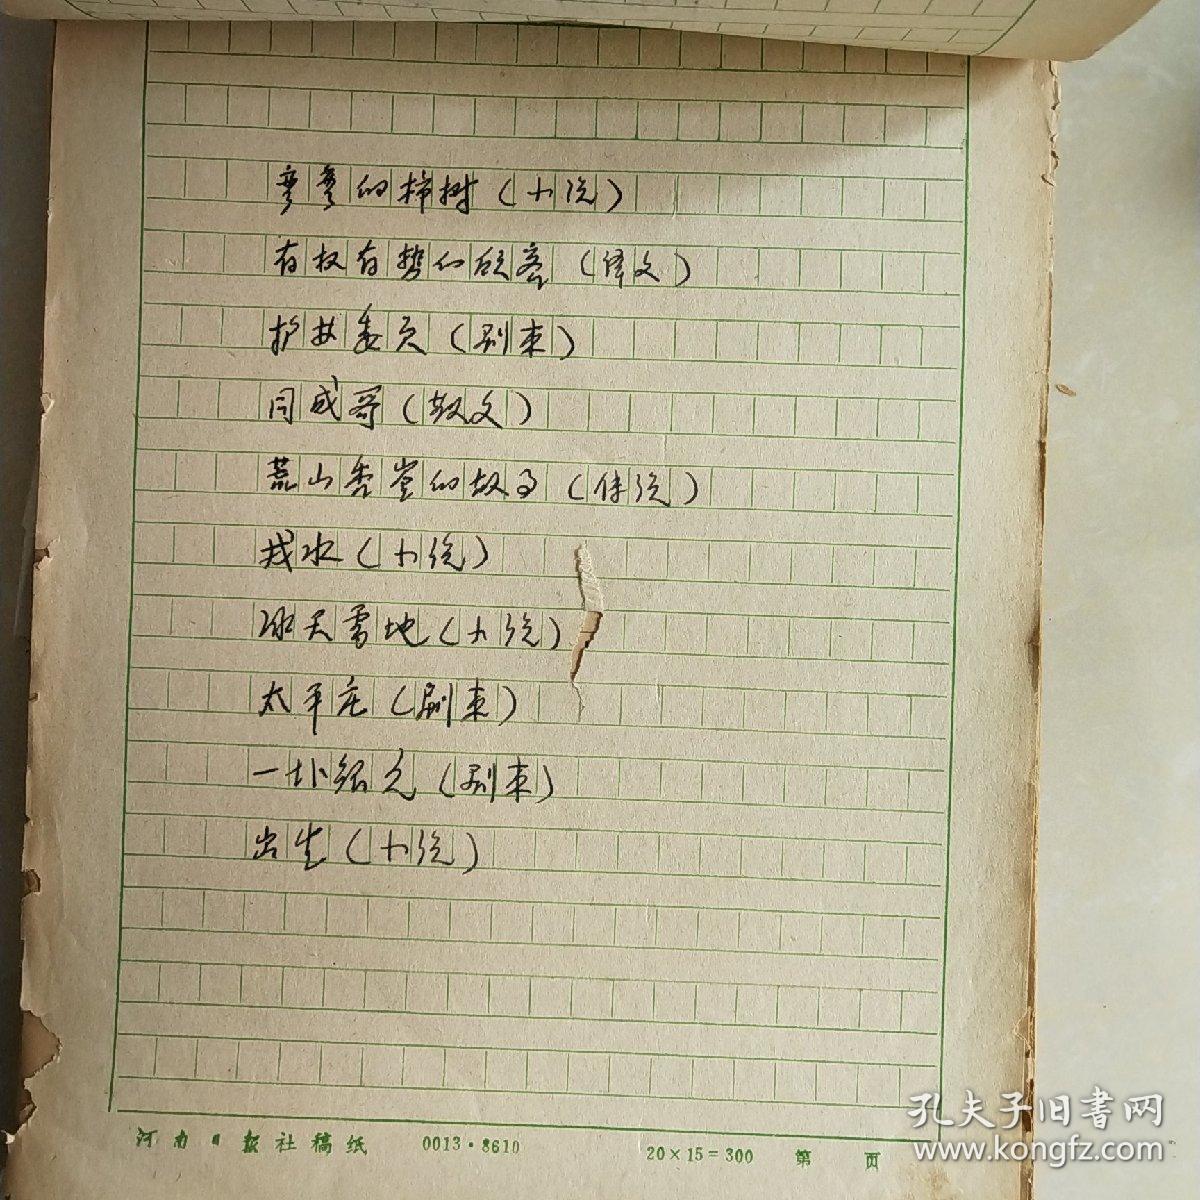 弯弯的柿树(小说)
有权有势的顾客(译文)
护井委员(剧本)
同成哥(散文)
荒山秃岩的故事(传说)
找水(小说)
冰天雪地(小说)
太平庄(剧本)
一块银元(剧本)
出生(小说)
河南日报社稿纸 0013·8610 20×15=300 第 页
孔夫子旧书网
www.kongfz.com